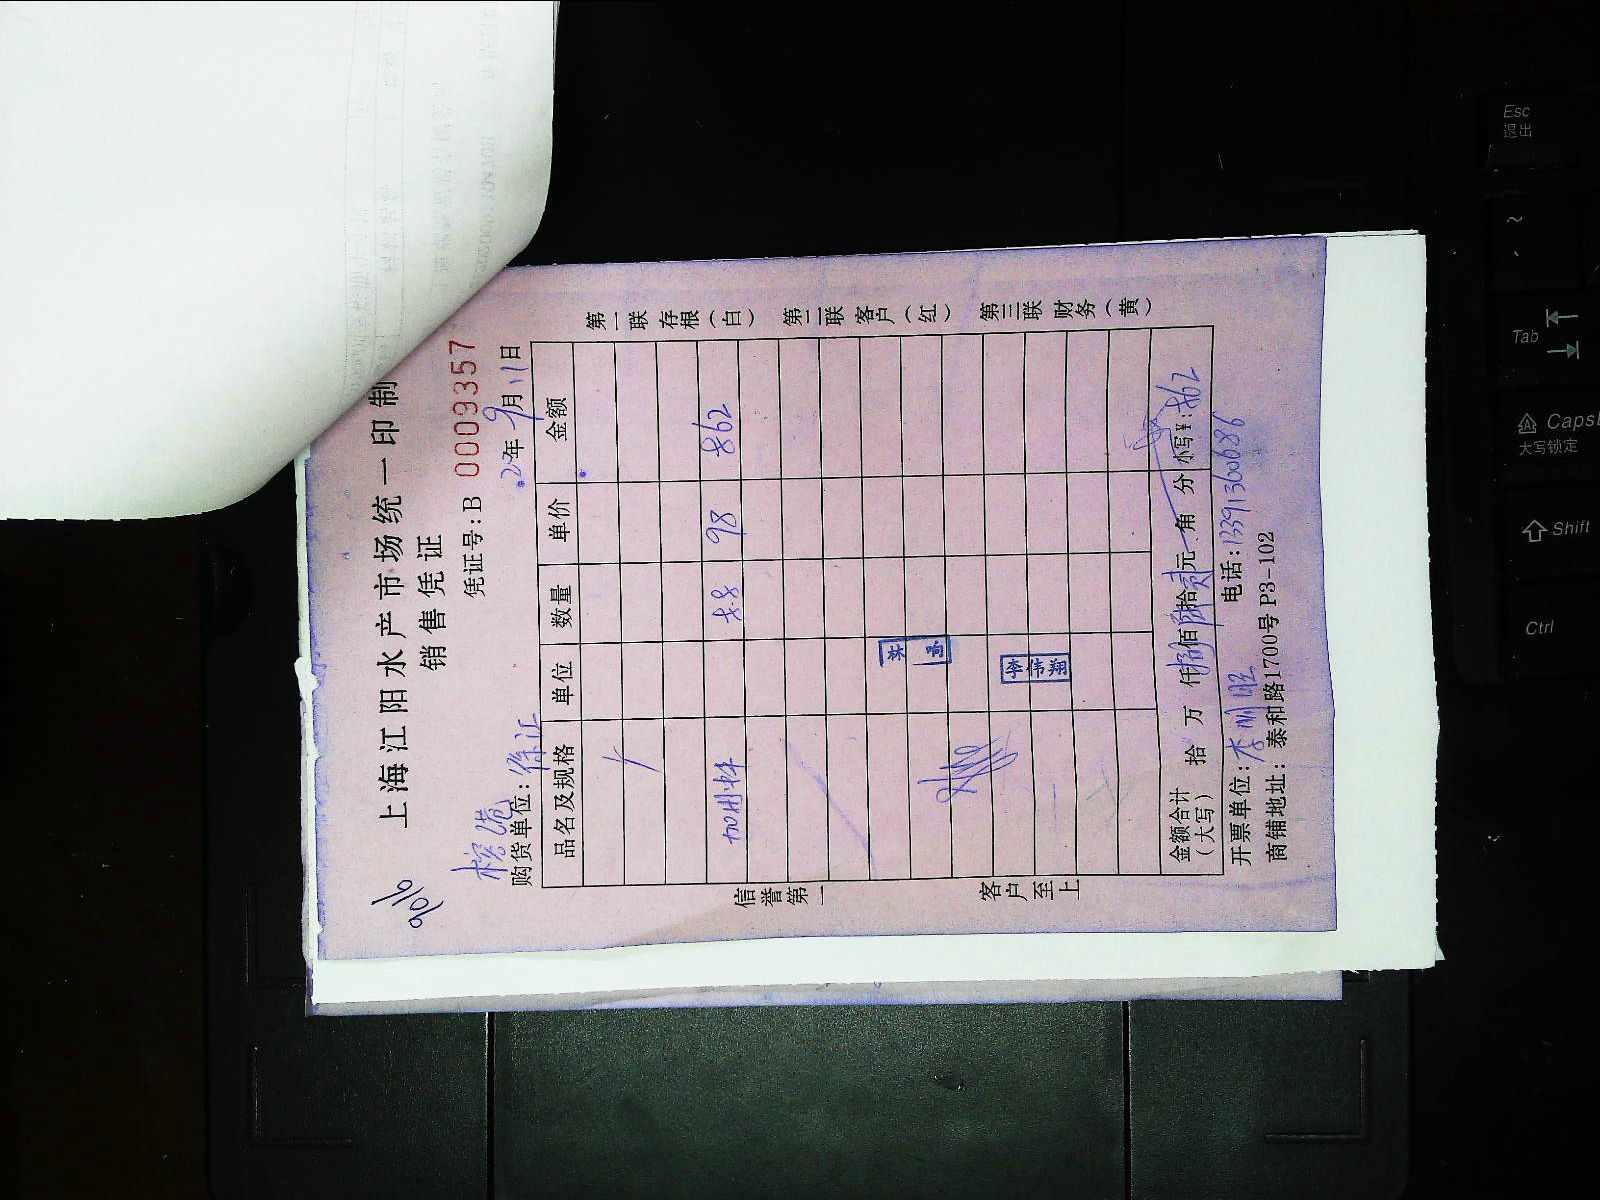 上海江阳水产市场统一印制
销售凭证
凭证号:B 0009357
90%
购货单位: 徐汇
2年9月11日
品名及规格 单位 数量 单价 金额
8.8 98 862
李伟翔
金额合计(大写) 拾 万 仟 捌佰陆拾贰元 角 分 小写¥:862
开票单位: 李明胜 电话:13391360686
商铺地址: 泰和路1700号P3-102
信誉第一 客户至上
第一联 存根(白) 第二联 客户(红) 第三联 财务(黄)
Esc
退出
~
Tab
Caps
大写锁定
Shift
Ctrl